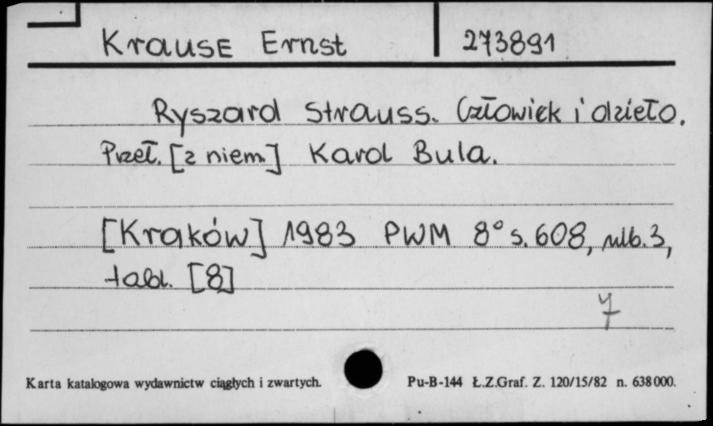 Krause Ernst 273891
Ryszard Strauss. Człowiek i dzieło.
Przeł. [z niem.] Karol Bula.
[Kraków] 1983 PWM 8° s. 608, nlb. 3,
tabl. [8]
7
Karta katalogowa wydawnictw ciągłych i zwartych. Pu-B-144 Ł.Z.Graf. Z. 120/15/82 n. 638000.